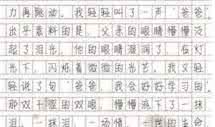 力再跳动。我轻轻叫了一声“爸爸”，
出乎意料的是，父亲的眼睛慢慢泛
起了泪光，他的眼睛湿润了，在灯
光下，闪烁着微微的光芒。我又轻
轻说了句“爸爸，我会好好学习的”，
那双干涩的双眼，慢慢流下了一抹
泪，抹